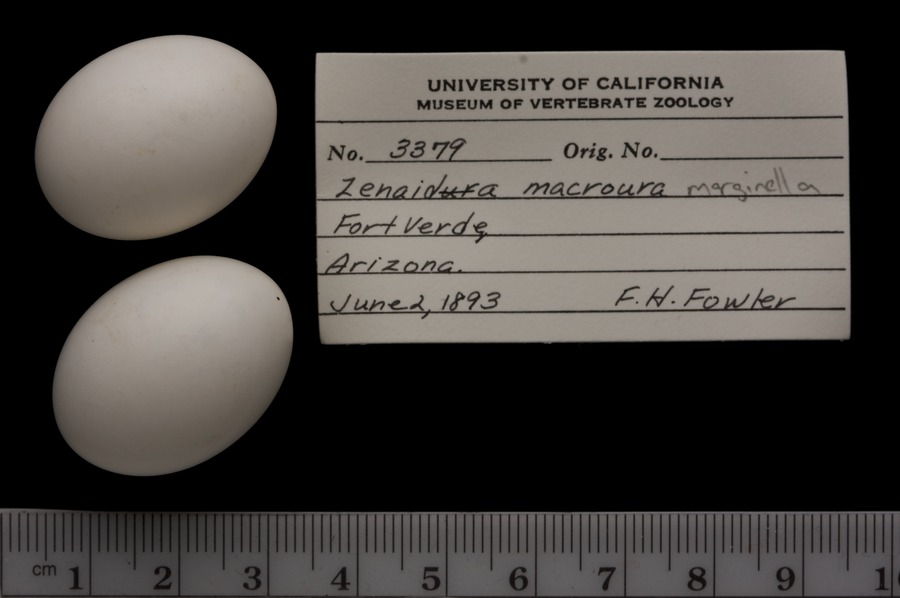 UNIVERSITY OF CALIFORNIA
MUSEUM OF VERTEBRATE ZOOLOGY
No. 3379 Orig. No.
Zenaidura macroura marginella
Fort Verde,
Arizona.
June 2, 1893 F. H. Fowler
cm 1 2 3 4 5 6 7 8 9 1